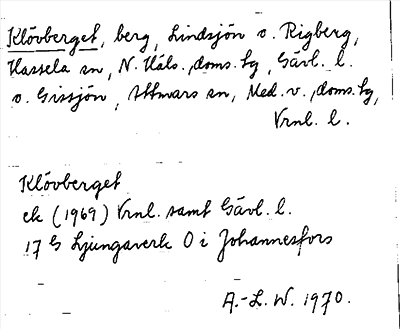 Klövberget, berg, Lindsjön o. Rigberg,
Hassela sn, N. Häls. doms. hg, Gävl. l.
o. Gissjön, Attmars sn, Med. v., doms. hg,
Vrnl. l.
Klövberget
ek (1969) Vrnl. samt Gävl. l.
17 G Ljungaverk O i Johannesfors
A.-L. W. 1970.